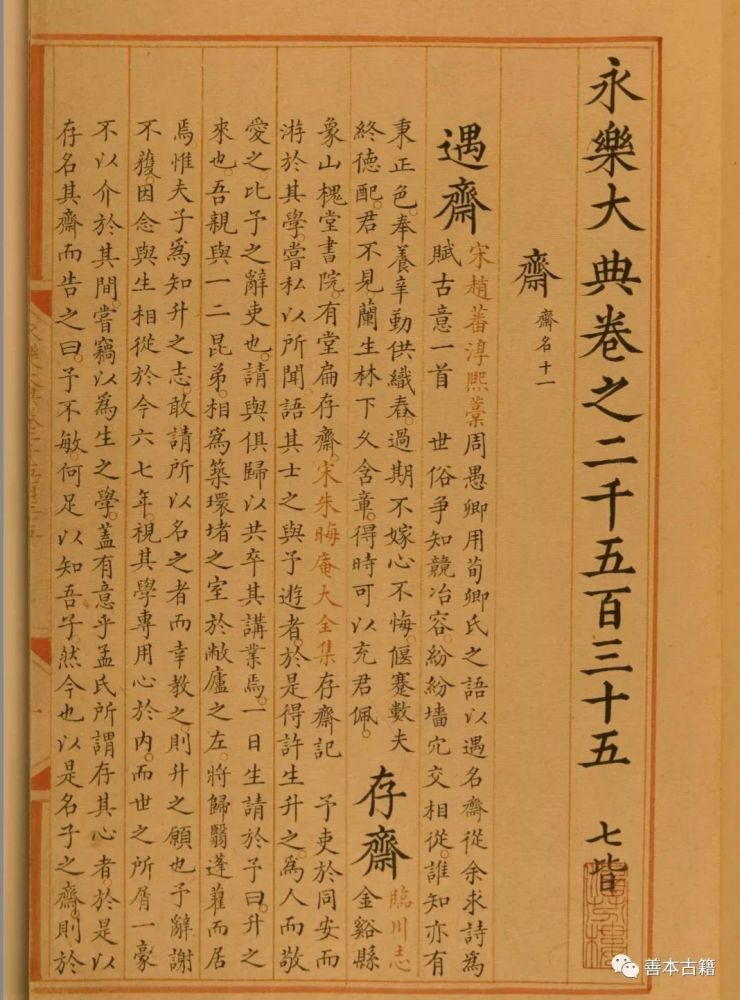 永樂大典卷之二千五百三十五 七皆
齋 齋名十一
遇齋
宋趙蕃淳熙藁周愚卿用荀卿氏之語以遇名齋從余求詩爲
賦古意一首 世俗爭知競冶容。紛紛墻穴交相從。誰知亦有
秉正色。奉養辛勤供織舂。過期不嫁心不悔。偃蹇數夫
終德配。君不見蘭生林下久含章。得時可以充君佩。
存齋
臨川志
金谿縣
象山槐堂書院。有堂扁存齋。宋朱晦庵大全集存齋記 予吏於同安而
游於其學。嘗私以所聞。語其士之與予遊者。於是得許生升之。爲人而敬
愛之。比予之辭吏也。請與俱歸以共卒其講業焉。一日生請於予曰。升之
來也。吾親與一二昆弟。相爲築環堵之室於敝廬之左。將歸翳蓬藋而居
焉。惟夫子爲知升之志。敢請所以名之者而幸教之則升之願也予辭謝
不獲。因念與生相從於今六七年。視其學專用心於內。而世之所屑一豪
不以介於其間。嘗竊以爲生之學。蓋有意乎孟氏所謂存其心者於是以
存名其齋而告之曰。予不敏。何足以知吾子。然今也以是名子之齋。則於
善本古籍